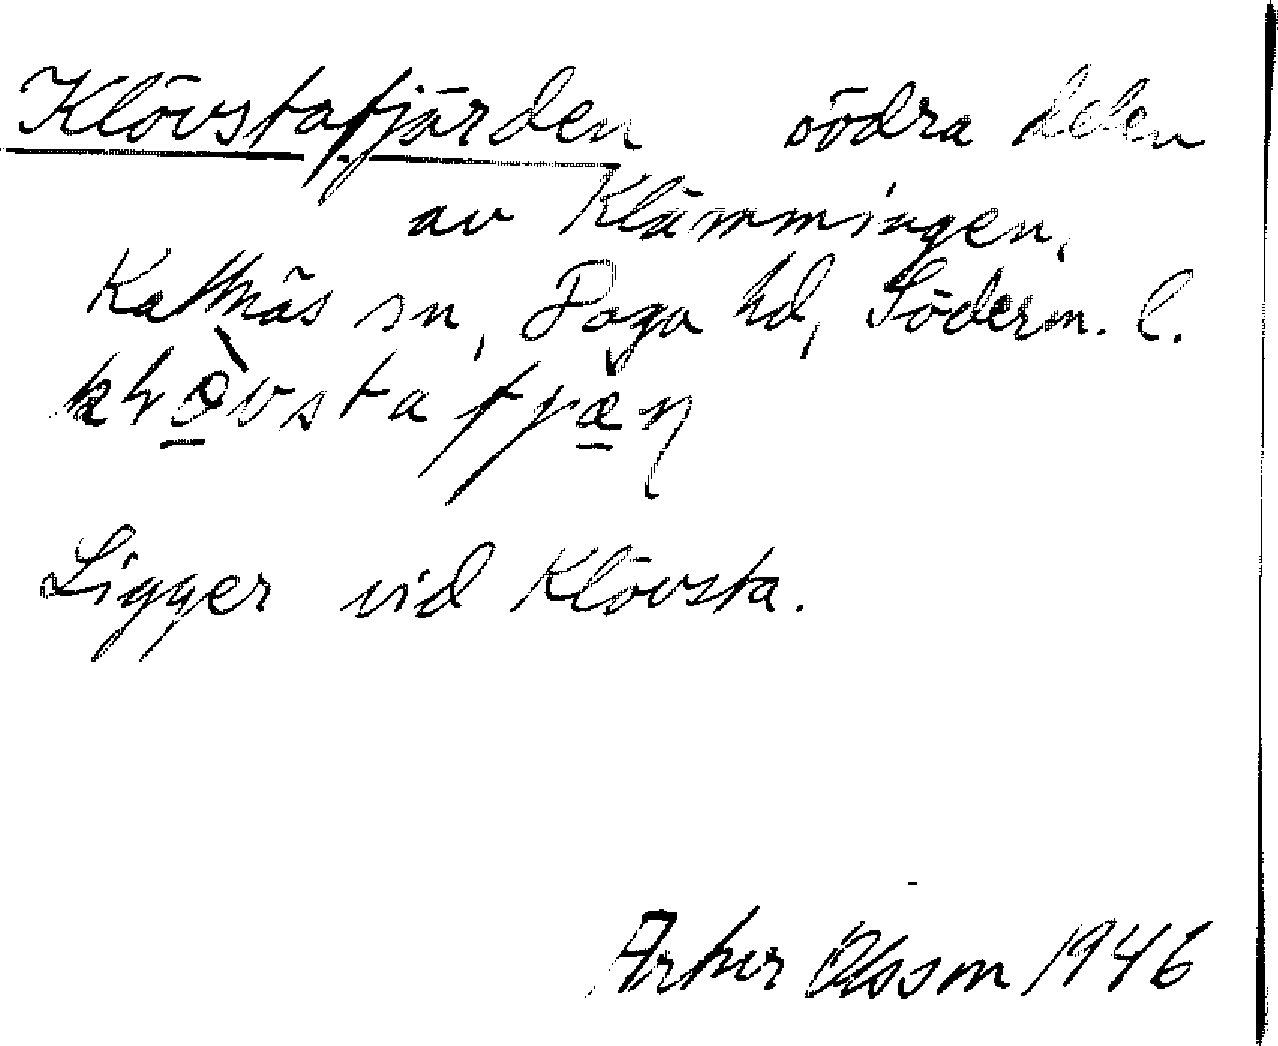 Klövstafjärden södra delen
av Klämmingen,
Kattnäs sn, Daga hd, Söderm. l.
Ligger vid Klövsta.
Artur Olsson 1946